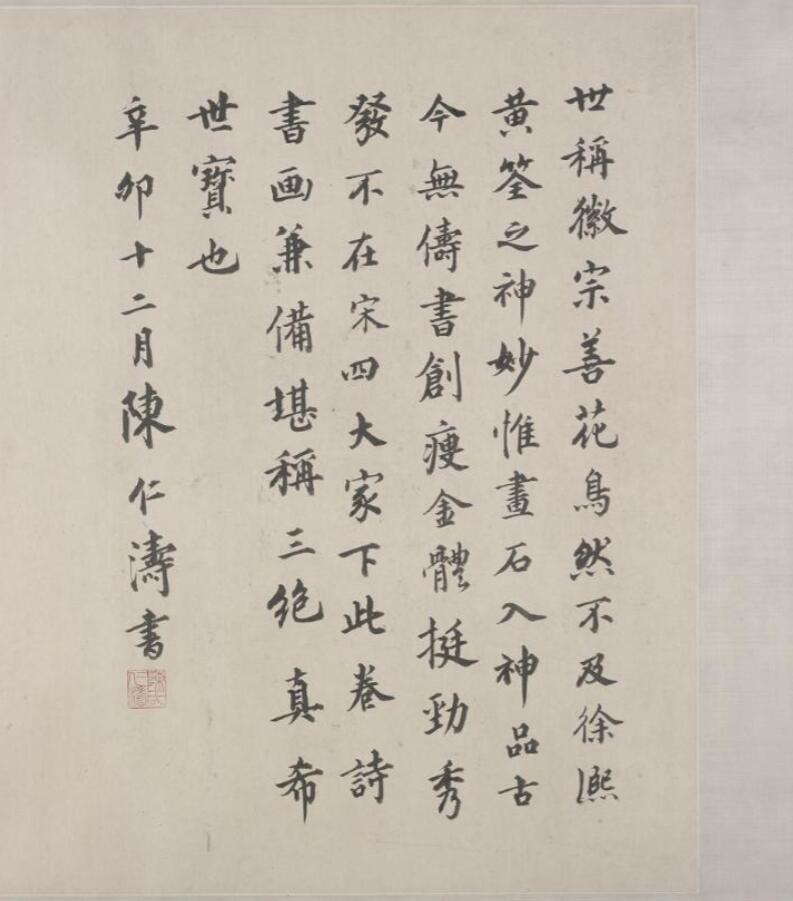 世稱徽宗善花鳥然不及徐熙
黄筌之神妙惟畫石入神品古
今無儔書創瘦金體挺勁秀
發不在宋四大家下此卷詩
書画兼備堪稱三絶真希
世寶也
辛卯十二月陳仁濤書